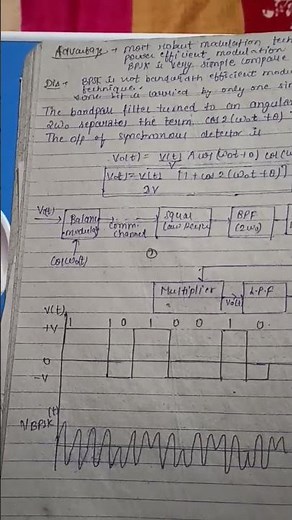 Advantage → most robust modulation tech
power efficient modulation
BPSK is very simple compare
Dis → BPSK is not bandwidth efficient modu
technique.
one bit is carried by only one si
The bandpass filter tuned to an angular
2ω0 separates the term cos 2(ω0t+θ)
The o/p of synchronous detector is
V0(t) = V(t) cos(ω0t+θ) cos(ω
V0(t) = V(t) [1 + cos 2(ω0t+θ)
2V
V(t) Balanc modulator Comm. channel Squar law device BPF (2ω0)
cos(ω0t)
②
Multiplier V0(t) L.P.F
V(t)
+V 1 1 0 1 0 0 1 0
0
-V
VBPSK(t)